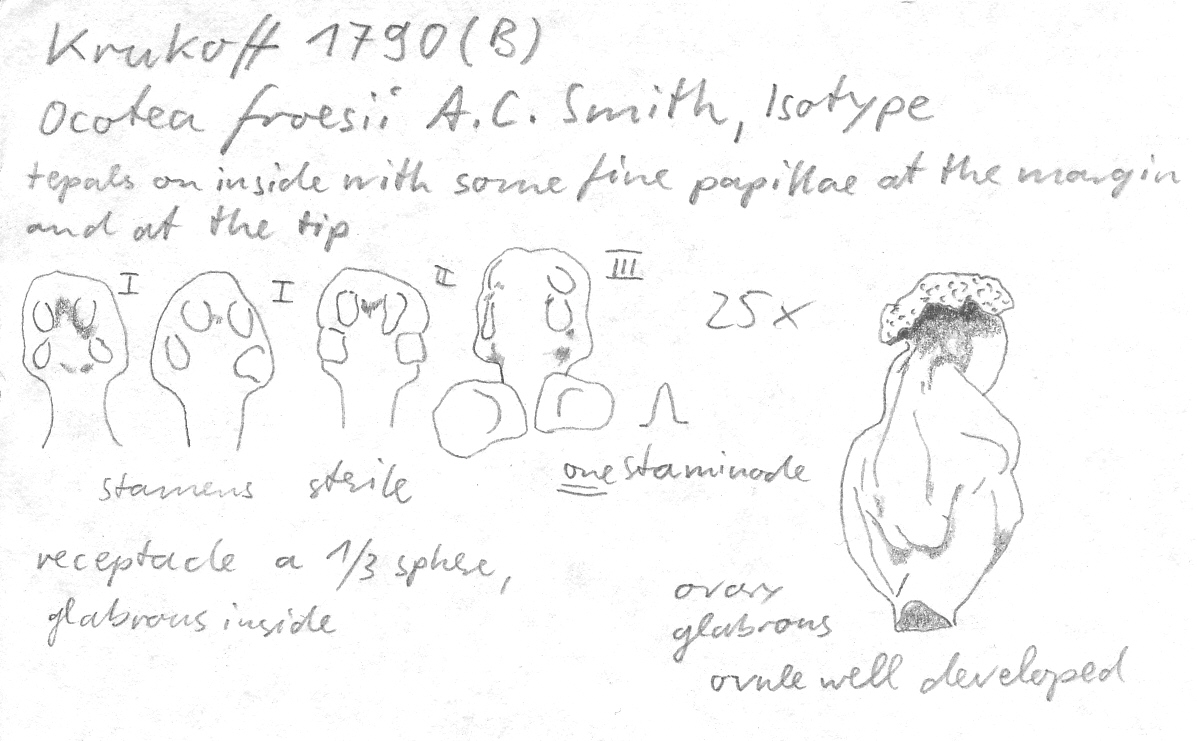 Krukoff 1790 (B)
Ocotea froesii A.C. Smith, Isotype
tepals on inside with some fine papillae at the margin
and at the tip
I I II III
25x
stamens sterile
one staminode
receptacle a 1/3 sphere,
glabrous inside
ovary
glabrous
ovule well developed